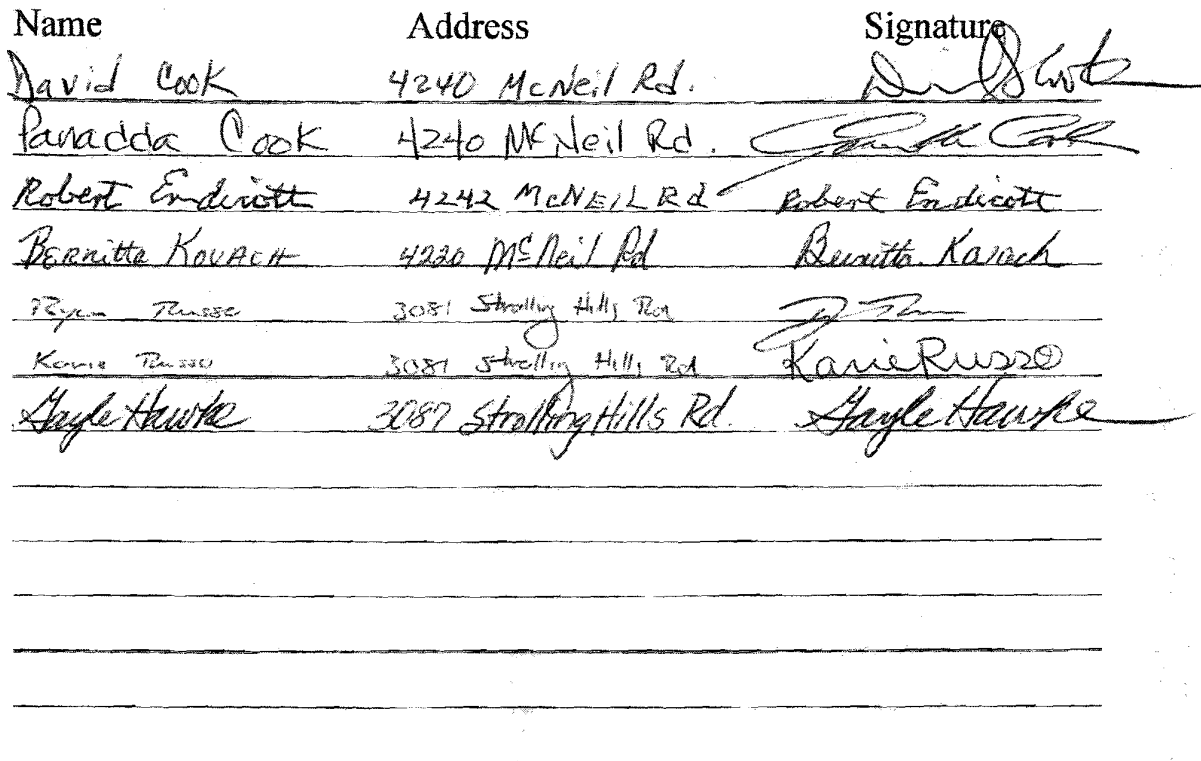 Name Address Signature
David Cook 4240 McNeil Rd.
Panadda Cook 4240 McNeil Rd. Cook
Robert Endicott 4242 McNEIL Rd Robert Endicott
BERNittA KOVACH 4220 McNeil Rd Bernitta Kovach
Ryan Russo 3081 Strolling Hills Rd
Karie Russo 3081 Strolling Hills Rd Karie Russo
Gayle Hawke 3087 Strolling Hills Rd. Gayle Hawke